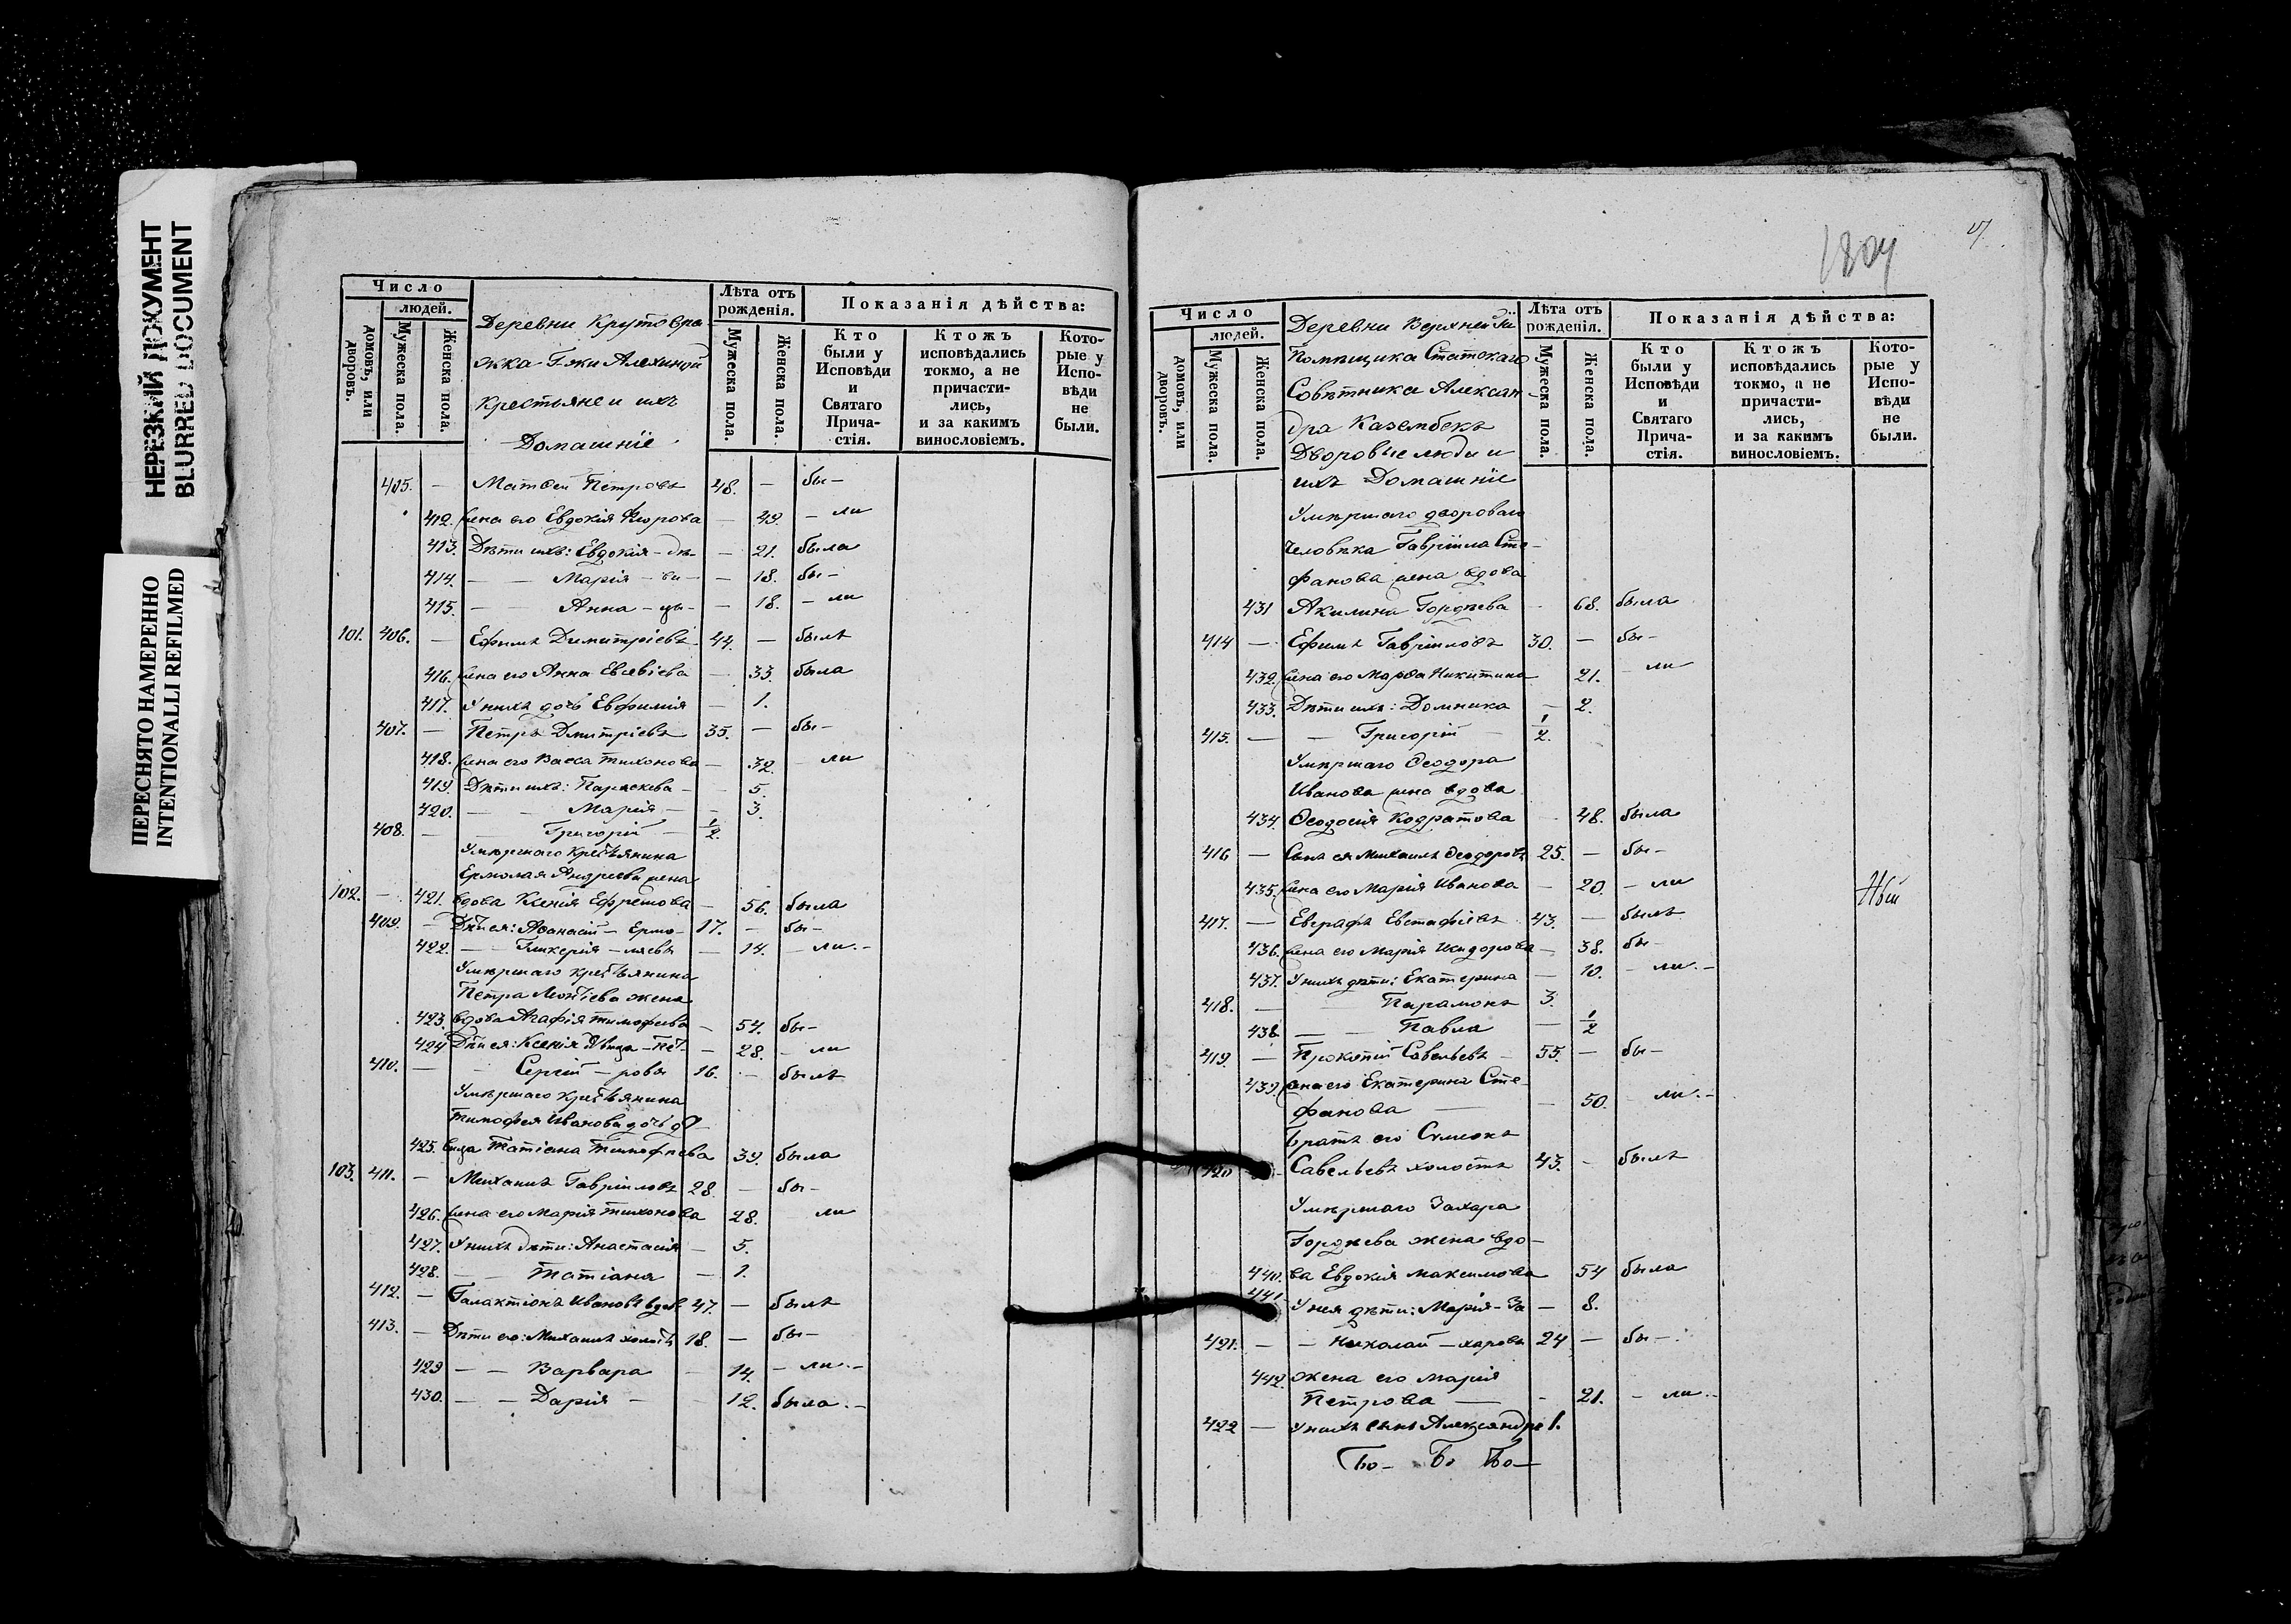 НЕРЕЗКИЙ ДОКУМЕНТ
BLURRED DOCUMENT
ПЕРЕСНЯТО НАМЕРЕННО
INTENTIONALLI REFILMED
Число
людей.
домовъ, или дворовъ.
Мужеска пола.
Женска пола.
Деревни Крутовра-
жка Г-жи Алехиной
Крестьяне и ихъ
Домашніе
Лѣта отъ рожденія.
Мужеска пола.
Женска пола.
Показанія дѣйства:
Кто были у Исповѣди и Святаго Прича-стія.
Ктожъ исповѣдались токмо, а не причасти-лись, и за какимъ винословіемъ.
Кото-рые у Испо-вѣди не были.
405. — Матѳей Петровъ 48. — бы-
412. жена его Евдокія — 49. — ли
413. Дѣти ихъ: Евдокія — дѣ- — 21. была
414. — — Марія — ви- — 18. бы-
415. — — Анна — цы- — 18. — ли
101. 406. — Ефимъ Димитріевъ 44. — былъ
416. жена его Анна Евсевіева — 33. была
417. У нихъ дочь Евфимія — 1.
407. — Петръ Дмитріевъ 35. — бы-
418. жена его Васса Тихонова — 32. — ли
419. Дѣти ихъ: Параскева — 5.
420. — — Марія — 3.
408. — Григорій — 1/2.
Умершаго крестьянина
Ермолая Андреева жена
102. — 421. вдова Ксенія Ефремова — 56. была
409. — Дѣти ея: Аѳанасій — Ермо- 17. — бы-
422. — — Гликерія — лаевы — 14. — ли.-
Умершаго крестьянина
Петра Леонтіева жена
423. вдова Агафія Тимофеева — 54. бы-
424 Дѣти ея: Ксенія дѣвица — Пет- — 28. — ли
410. — Сергій — ровы 16. — былъ
Умершаго крестьянина
Тимофея Иванова дочь дѣ-
425. вица Татіана Тимофеева 39. была
103. 411. — Михаилъ Гавріиловъ 28. — бы-
426. жена его Марія Тихонова 28. ли
427. У нихъ дѣти: Анастасія — 5.
428. — — Татіана — 1.
412. — Галактіонъ Ивановъ вдовъ 47. — былъ
413. — Дѣти его: Михаилъ холостъ 18. — бы-
429 — — Варвара — 14. — ли.-
430. — — Дарія — 12. была.-
1809
Число
людей.
домовъ, или дворовъ.
Мужеска пола.
Женска пола.
Деревни Верхней
Помѣщика Статскаго
Совѣтника Алексан-
дра Казембекъ
Дворовые люди и
ихъ Домашніе
Лѣта отъ рожденія.
Мужеска пола.
Женска пола.
Показанія дѣйства:
Кто были у Исповѣди и Святаго Прича-стія.
Ктожъ исповѣдались токмо, а не причасти-лись, и за какимъ винословіемъ.
Кото-рые у Испо-вѣди не были.
Умершаго двороваго
человѣка Гавріила Сте-
фанова жена вдова
431 Акилина Гордѣева — 68. была
414 — Ефимъ Гавріиловъ 30. — бы-
432. жена его Марѳа Никитина 21. — ли
433. Дѣти ихъ: Домника — 2.
415. — — Григорій — 1/2.
Умершаго Ѳеодора
Иванова жена вдова
434. Ѳеодосія Кодратова — 48. была
416 — Сынъ ея Михаилъ Ѳеодоровъ 25. — бы-
435. жена его Марія Иванова — 20. — ли
417. — Евграфъ Евстафіевъ 43. — былъ
436. жена его Марія Исидорова — 38. бы-
437. У нихъ дѣти: Екатерина — 10. — ли.-
418. — Парамонъ 3.
438 — — Павла — 1/2
419. — Прокопій Савельевъ — 55. — бы-
439. жена его Екатерина Сте-
фанова — — 50. — ли.-
Братъ его Сумеонъ
420 — Савельевъ холостъ 43. — былъ
Умершаго Захара
Гордѣева жена вдо-
440. ва Евдокія Максимова 54 была
441. У нея дѣти: Марія — За — 8.
421. — — Николай — харовы 24 — бы-
442. жена его Марія
Петрова — — 21. — ли.-
422 — У нихъ сынъ Александръ 1.